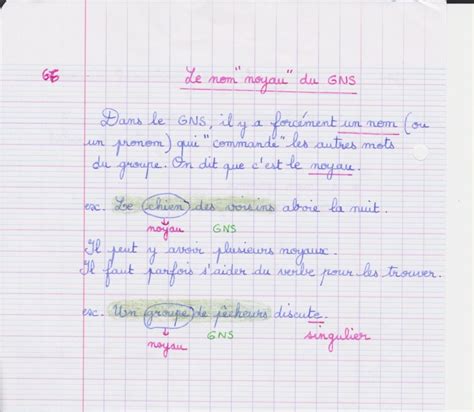 G6 Le nom "noyau" du GNS
Dans le GNS, il y a forcément un nom (ou
un pronom) qui "commande" les autres mots
du groupe. On dit que c'est le noyau.
ex. Le chien des voisins aboie la nuit.
noyau GNS
Il peut y avoir plusieurs noyaux.
Il faut parfois s'aider du verbe pour les trouver.
ex. Un groupe de pêcheurs discute.
noyau GNS singulier